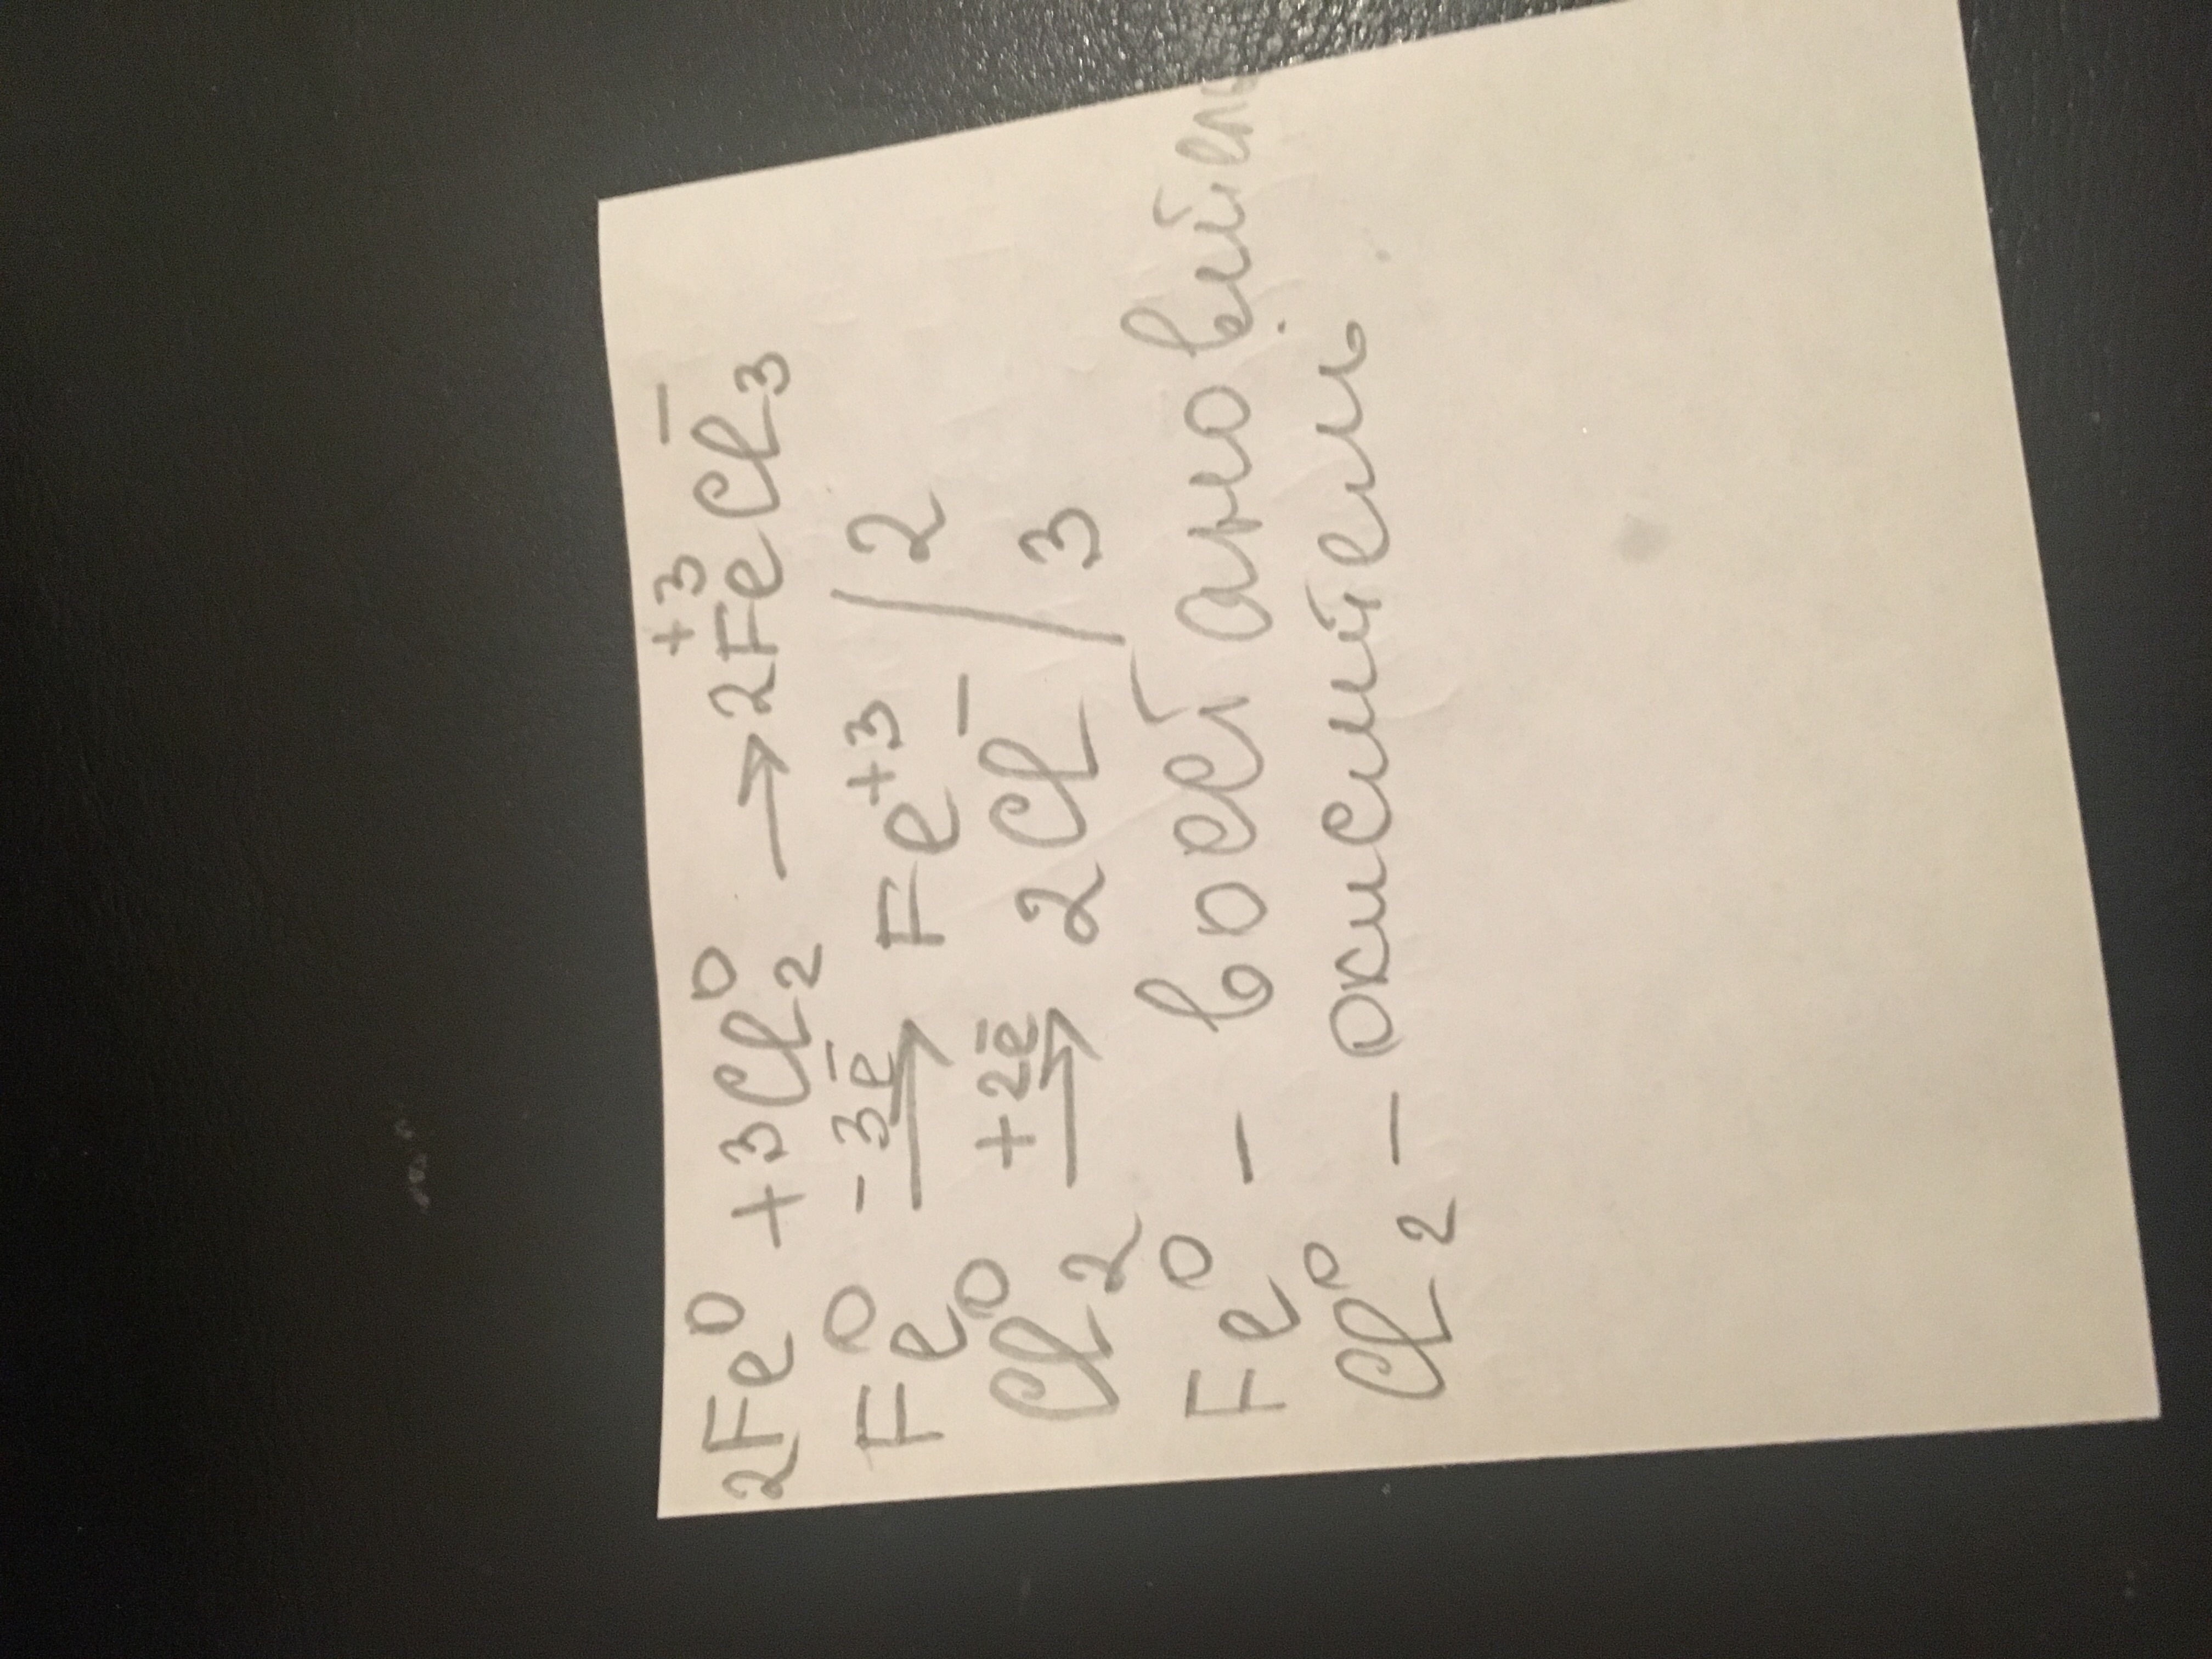 2Fe⁰ + 3Cl₂⁰ → 2Fe⁺³Cl₃⁻
Fe⁰ -3e̅→ Fe⁺³ / 2
Cl₂⁰ +2e̅→ 2Cl⁻ / 3
Fe⁰ - восстановитель
Cl₂⁰ - окислитель.